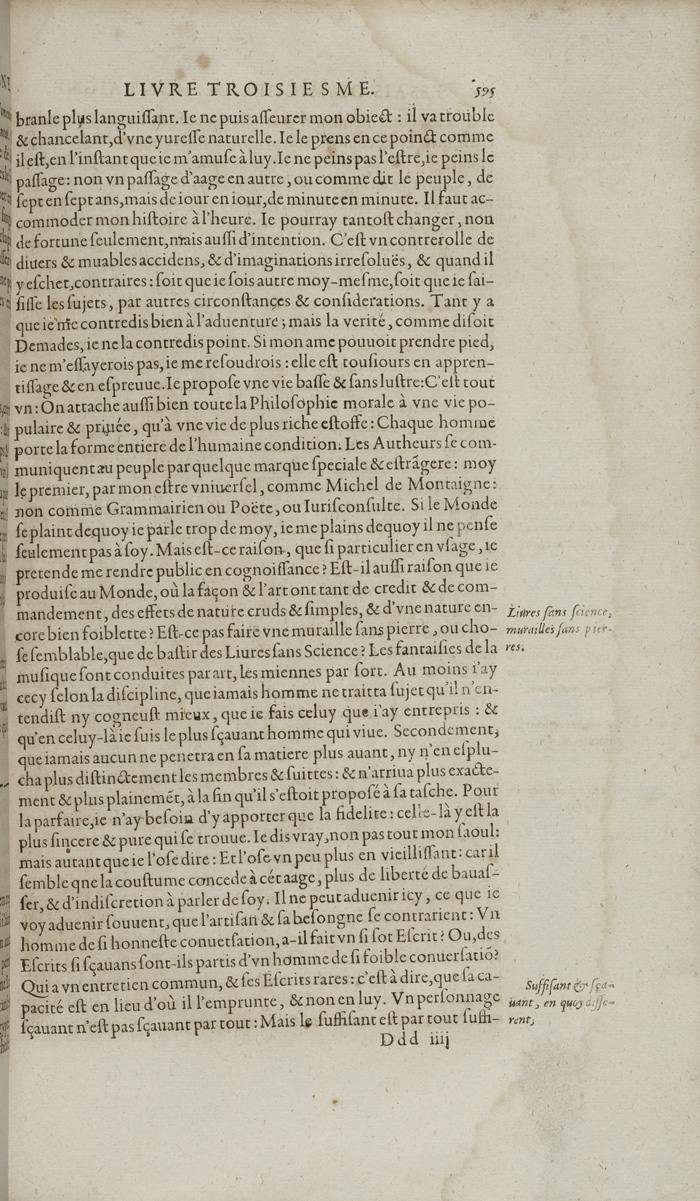 LIVRE TROISIESME. 595
branle plus languiſſant. Ie ne puis aſſeurer mon obiect : il va trouble
& chancelant, d'vne yureſſe naturelle. Ie le prens en ce poinct comme
il eſt, en l'inſtant que ie m'amuſe à luy. Ie ne peins pas l'eſtre, ie peins le
paſſage : non vn paſſage d'aage en autre, ou comme dit le peuple, de
ſept en ſept ans, mais de iour en iour, de minute en minute. Il faut ac-
commoder mon hiſtoire à l'heure. Ie pourray tantoſt changer, non
de fortune ſeulement, mais auſſi d'intention. C'eſt vn contrerolle de
diuers & muables accidens, & d'imaginations irreſoluës, & quand il
y eſchet, contraires : ſoit que ie ſois autre moy-meſme, ſoit que ie ſai-
ſiſſe les ſujets, par autres circonſtances & conſiderations. Tant y a
que ie me contredis bien à l'aduenture ; mais la verité, comme diſoit
Demades, ie ne la contredis point. Si mon ame pouuoit prendre pied,
ie ne m'eſſayerois pas, ie me reſoudrois : elle eſt touſiours en appren-
tiſſage & en eſpreuue. Ie propoſe vne vie baſſe & ſans luſtre : C'eſt tout
vn : On attache auſſi bien toute la Philoſophie morale à vne vie po-
pulaire & priuée, qu'à vne vie de plus riche eſtoffe : Chaque homme
porte la forme entiere de l'humaine condition. Les Autheurs ſe com-
muniquent au peuple par quelque marque ſpeciale & eſtrãgere : moy
le premier, par mon eſtre vniuerſel, comme Michel de Montaigne :
non comme Grammairien ou Poëte, ou Iuriſconſulte. Si le Monde
ſe plaint dequoy ie parle trop de moy, ie me plains dequoy il ne penſe
ſeulement pas à ſoy. Mais eſt-ce raiſon, que ſi particulier en vſage, ie
pretende me rendre public en cognoiſſance ? Eſt-il auſſi raiſon que ie
produiſe au Monde, où la façon & l'art ont tant de credit & de com-
mandement, des effets de nature cruds & ſimples, & d'vne nature en-
core bien foiblette ? Eſt-ce pas faire vne muraille ſans pierre, ou cho-
ſe ſemblable, que de baſtir des Liures ſans Science ? Les fantaiſies de la
muſique ſont conduites par art, les miennes par ſort. Au moins i'ay
cecy ſelon la diſcipline, que iamais homme ne traitta ſujet qu'il n'en-
tendiſt ny cogneuſt mieux, que ie fais celuy que i'ay entrepris : &
qu'en celuy-là ie ſuis le plus ſçauant homme qui viue. Secondement,
que iamais aucun ne penetra en ſa matiere plus auant, ny n'en eſplu-
cha plus diſtinctement les membres & ſuittes : & n'arriua plus exacte-
ment & plus plainemẽt, à la fin qu'il s'eſtoit propoſé à ſa taſche. Pour
la parfaire, ie n'ay beſoin d'y apporter que la fidelité : celle-là y eſt la
plus ſincere & pure qui ſe trouue. Ie dis vray, non pas tout mon ſaoul :
mais autant que ie l'oſe dire : Et l'oſe vn peu plus en vieilliſſant : car il
ſemble qne la couſtume concede à cét aage, plus de liberté de bauaſ-
ſer, & d'indiſcretion à parler de ſoy. Il ne peut aduenir icy, ce que ie
voy aduenir ſouuent, que l'artiſan & ſa beſongne ſe contrarient : Vn
homme de ſi honneſte conuerſation, a-il fait vn ſi ſot Eſcrit ? Ou, des
Eſcrits ſi ſçauans ſont-ils partis d'vn homme de ſi foible conuerſatiõ?
Qui a vn entretien commun, & ſes Eſcrits rares : c'eſt à dire, que ſa ca-
pacité eſt en lieu d'où il l'emprunte, & non en luy. Vn perſonnage
ſçauant n'eſt pas ſçauant par tout : Mais le ſuffiſant eſt par tout ſuffi-
Ddd iiij
Liures ſans ſcience,
murailles ſans pier-
res.
Suffiſant & ſça-
uant, en quoy diffe-
rent,